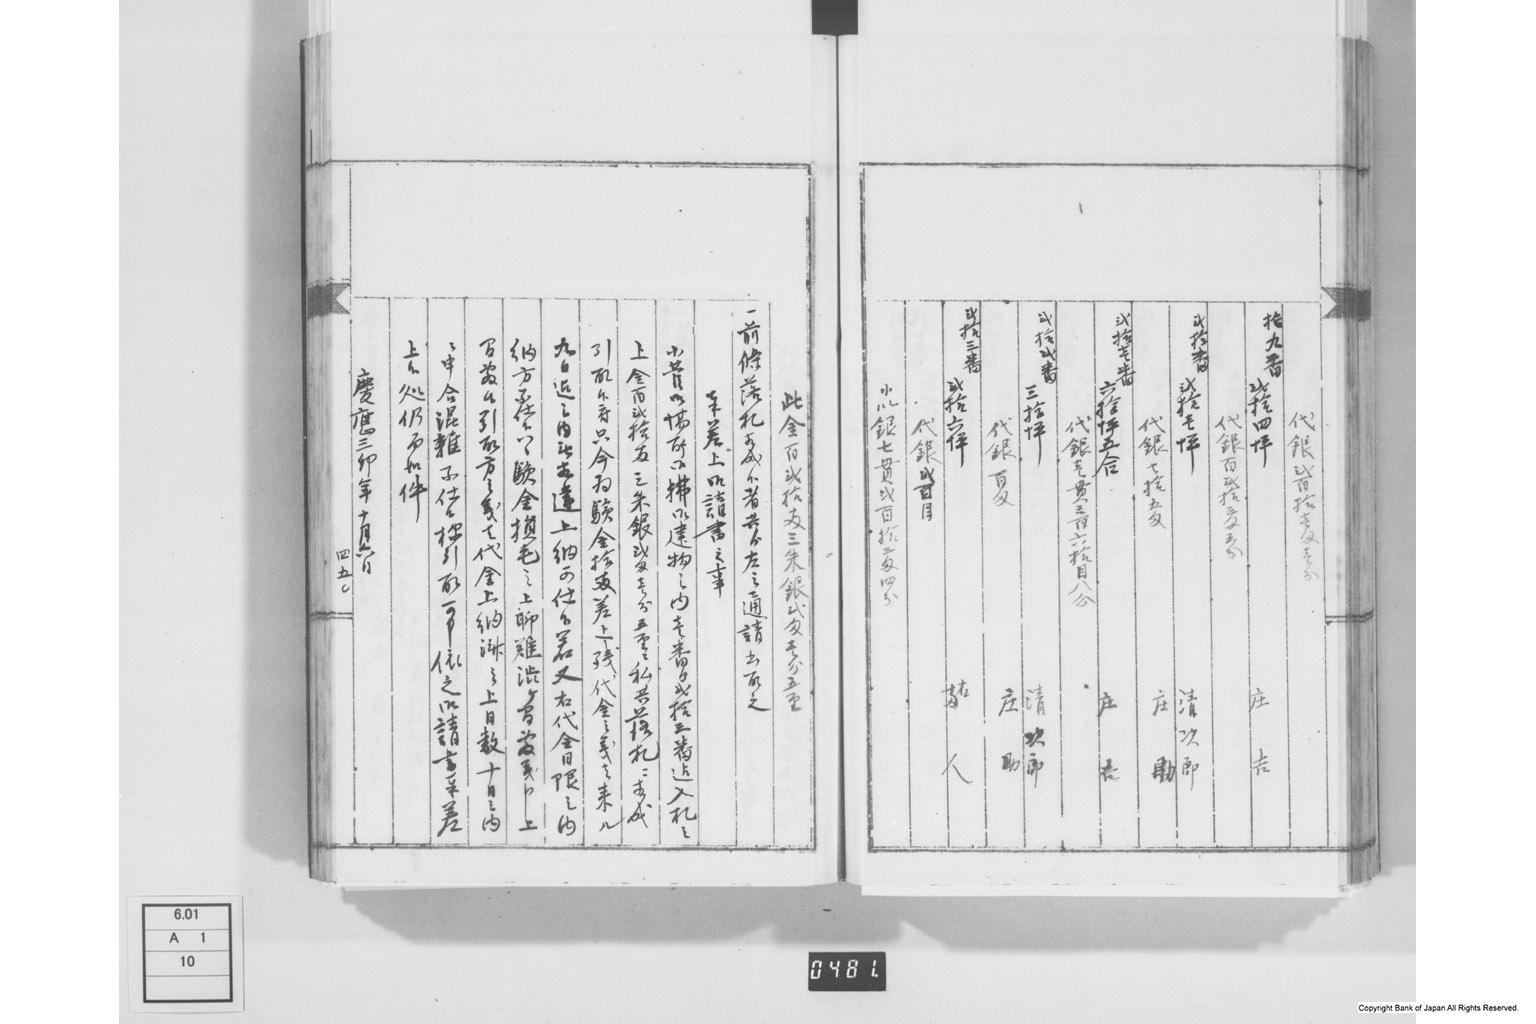 代銀弐百拾壱匁壱分
拾九番
弐拾四坪
庄吉
代銀百弐拾五匁五分
弐拾番
弐拾七坪
清次郎
庄助
代銀七拾五匁
弐拾壱番
六拾坪五合
庄吉
代銀壱貫三百六拾目八分
弐拾弐番
三拾坪
清次郎
庄助
代銀百匁
弐拾三番
弐拾六坪
右
人
代銀弐百目
小以銀七貫弐百拾五匁四分
此金百弐拾両三朱銀弐匁壱分五厘
一前條落札相成候者共分左之通請書取之
差上御請書之事
小菅御場所御拂御建物之内壱番ゟ弐拾三番迄入札之
上金百弐拾両三朱銀弐匁壱分五厘私共落札ニ相成
引取候ニ付只今為験金拾両差上残代金之義者来ル
九日迄之内無相違上納可仕候若又右代金日限之内
納方不仕候ハヽ験金損毛之上
引取方之義者代金上納済之上日数十日之内
申合混雑不仕候様引取可申依之御請書差
上候処仍而如件
慶應三卯年十月六日
四五〇
6.01
A 1
10
0481.
Copyright Bank of Japan All Rights Reserved.